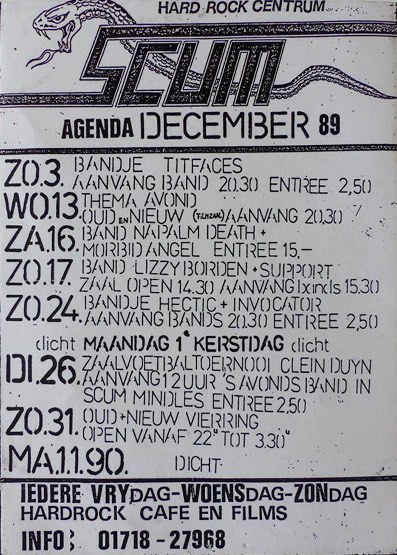 HARD ROCK CENTRUM
SCUM
AGENDA DECEMBER 89
ZO.3. BANDJE TITFACES
AANVANG BAND 20.30 ENTREE 2,50
WO.13. THEMA AVOND
OUD EN NIEUW AANVANG 20,30
ZA.16. BAND NAPALM DEATH +
MORBID ANGEL ENTREE 15,-
ZO.17. BAND LIZZY BORDEN + SUPPORT
ZAAL OPEN 14.30 AANVANG 15.30
ZO.24. BANDJE HECTIC + INVOCATOR
AANVANG BANDS 20,30 ENTREE 2,50
dicht MAANDAG 1e KERSTDAG dicht
DI.26. ZAALVOETBALTOERNOOI CLEIN DUYN
AANVANG 12 UUR 'S AVONDS BAND IN
SCUM MINDLES ENTREE 2,50
ZO.31. OUD + NIEUW VIERRING
OPEN VANAF 22" TOT 3.30"
MA.1.1.90. DICHT
IEDERE VRYDAG-WOENSDAG-ZONDAG
HARDROCK CAFE EN FILMS
INFO: 01718 - 27968